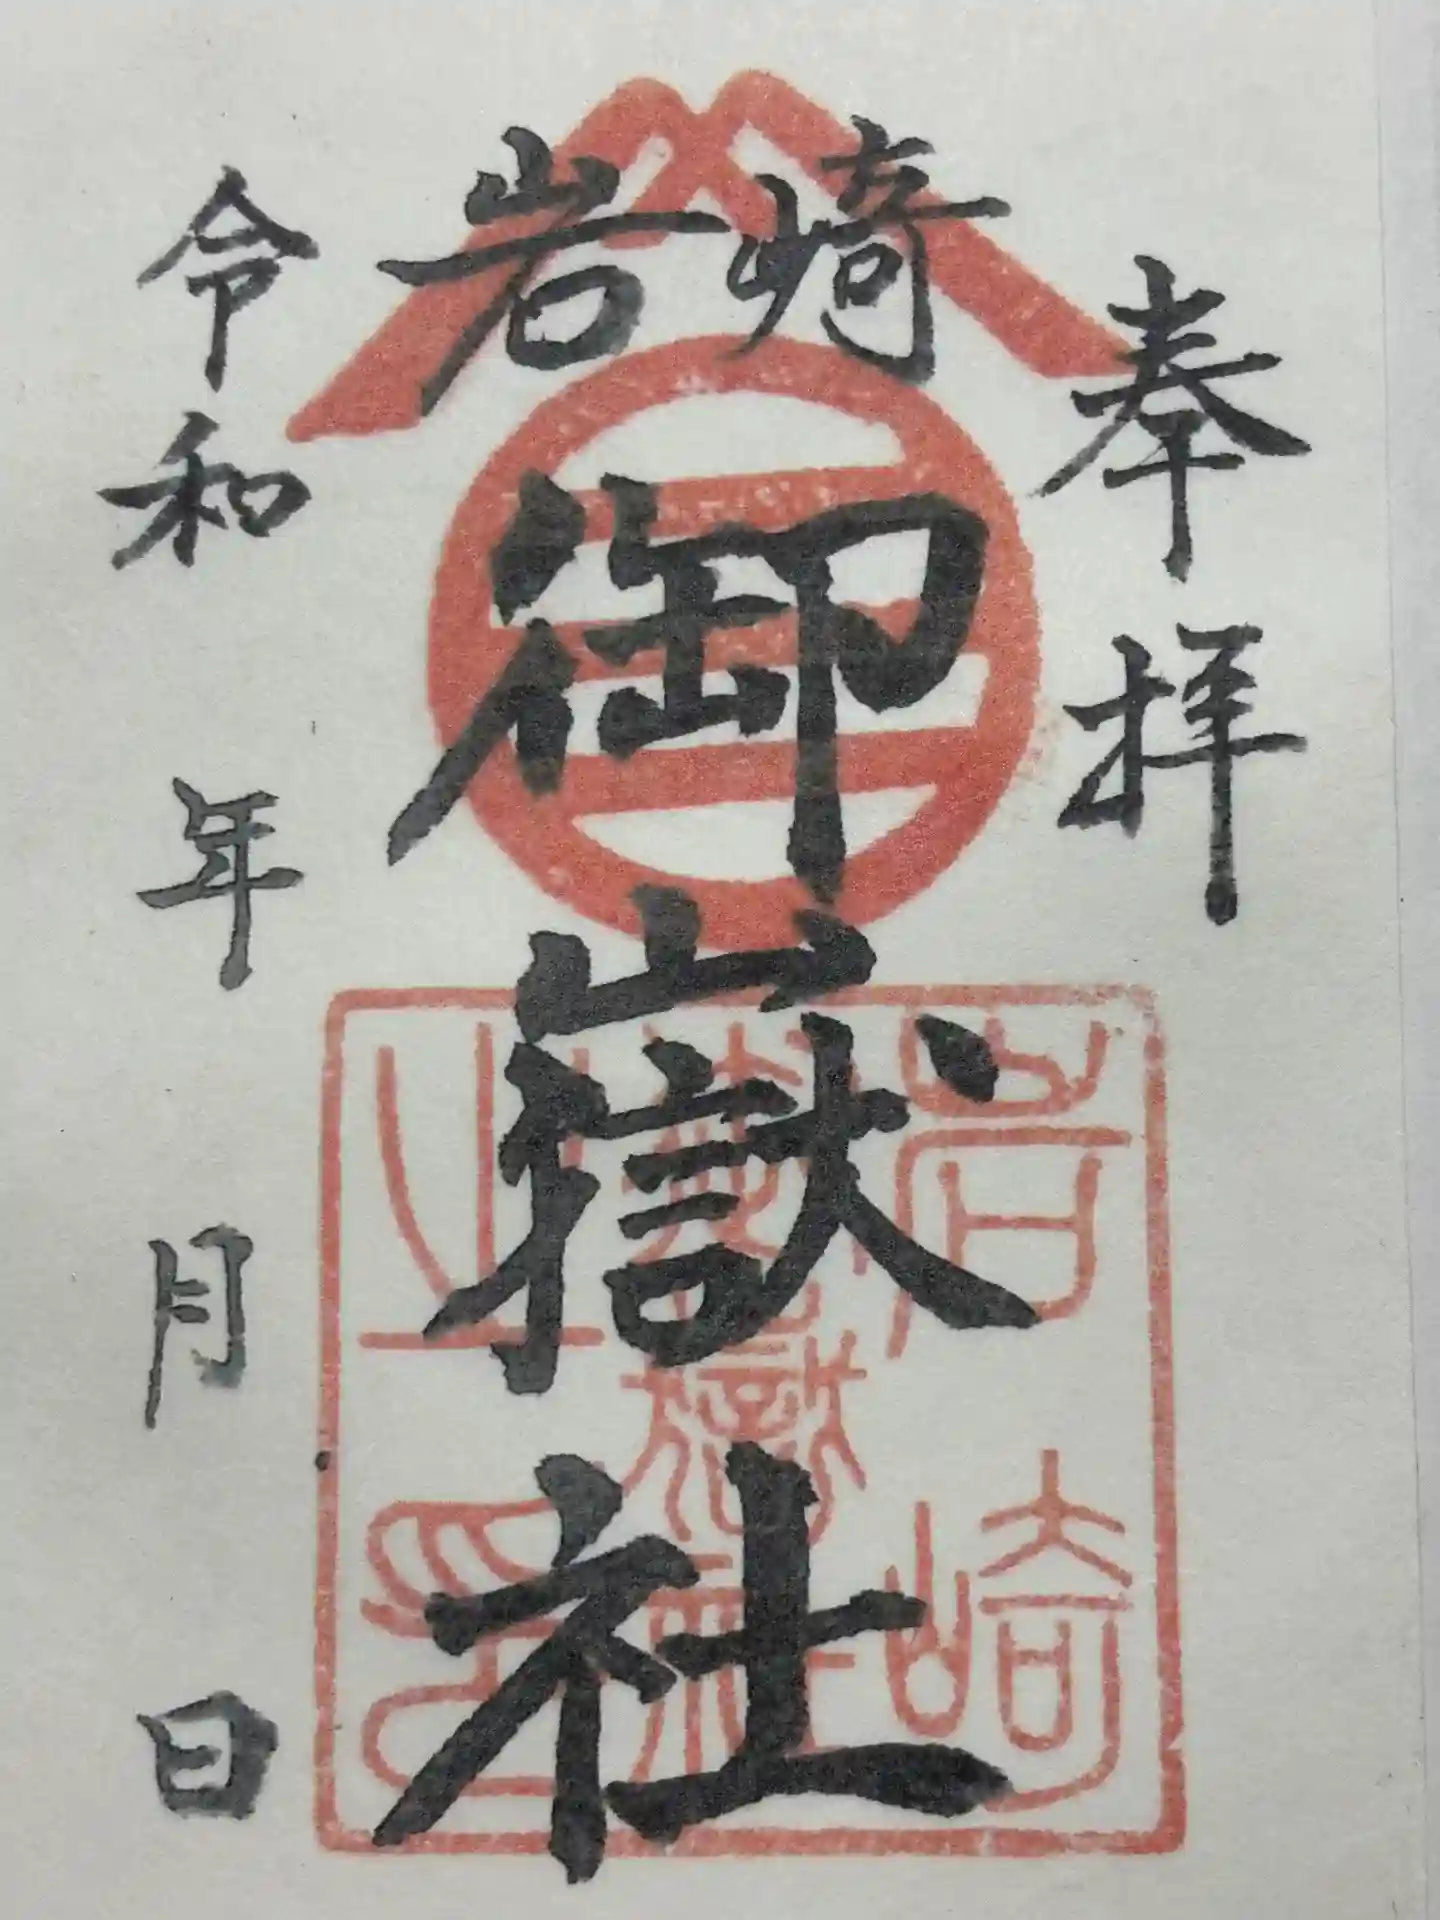 奉拝
岩崎
御嶽社
令和 年 月 日
岩崎
御嶽社
之印